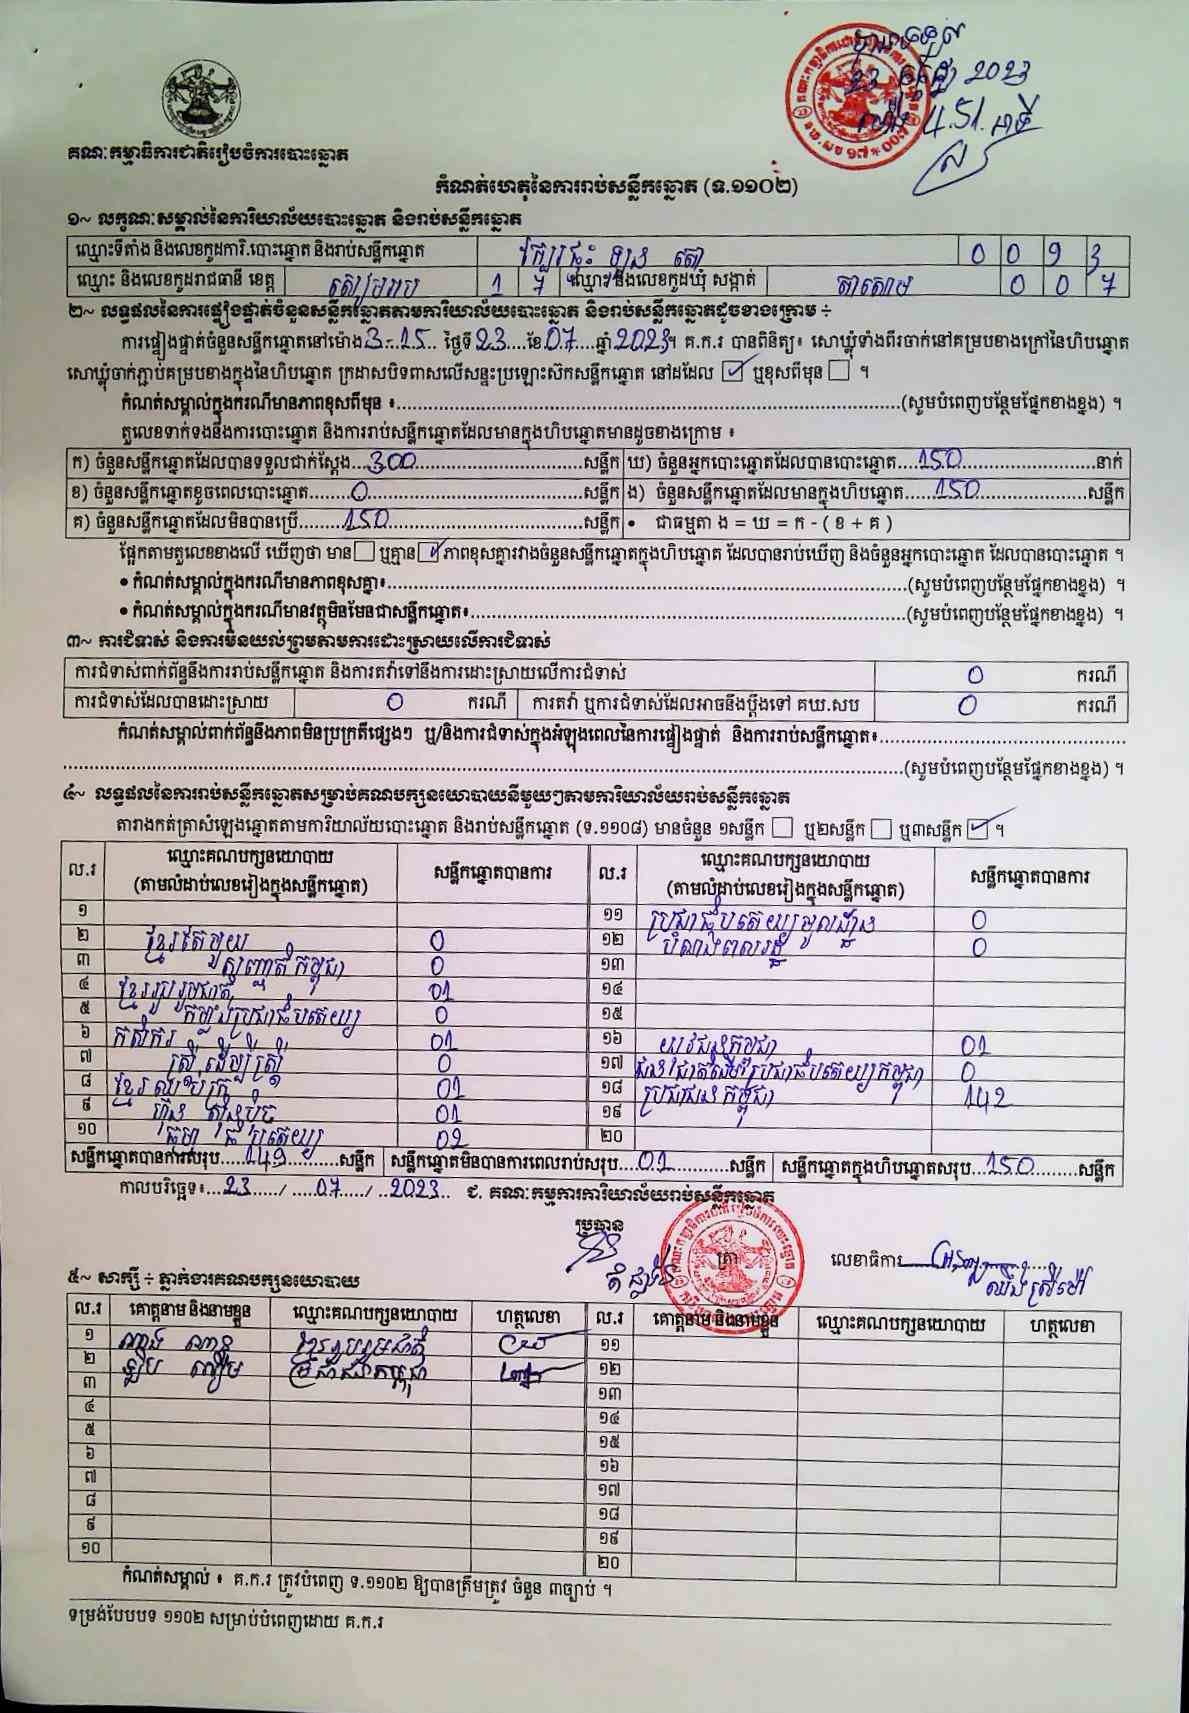 23 កក្កដា 2023
4.51. នាទី
គណៈកម្មាធិការជាតិរៀបចំការបោះឆ្នោត
កំណត់ហេតុនៃការរាប់សន្លឹកឆ្នោត (ទ.១១០២)
១~ លក្ខណៈសម្គាល់នៃការិយាល័យបោះឆ្នោត និងរាប់សន្លឹកឆ្នោត
ឈ្មោះទីតាំង និងលេខកូដការិ.បោះឆ្នោត និងរាប់សន្លឹកឆ្នោត 0 0 9 3
ឈ្មោះ និងលេខកូដរាជធានី ខេត្ត សៀមរាប 1 7 ឈ្មោះ និងលេខកូដឃុំ សង្កាត់ តាសោម 0 0 7
២~ លទ្ធផលនៃការផ្ទៀងផ្ទាត់ចំនួនសន្លឹកឆ្នោតតាមការិយាល័យបោះឆ្នោត និងរាប់សន្លឹកឆ្នោតដូចខាងក្រោម ÷
ការផ្ទៀងផ្ទាត់ចំនួនសន្លឹកឆ្នោតនៅម៉ោង 3-15 ថ្ងៃទី 23 ខែ 07 ឆ្នាំ 2023 ។ គ.ក.រ បានពិនិត្យ៖ សោឃ្លុំទាំងពីរចាក់នៅគម្របខាងក្រៅនៃហិបឆ្នោត
សោឃ្លុំចាក់ភ្ជាប់គម្របខាងក្នុងនៃហិបឆ្នោត ក្រដាសបិទពាសលើសន្ទះប្រឡោះស៊កសន្លឹកឆ្នោត នៅដដែល ☑ ឬខុសពីមុន ☐ ។
កំណត់សម្គាល់ក្នុងករណីមានភាពខុសពីមុន ៖....(សូមបំពេញបន្ថែមផ្នែកខាងខ្នង) ។
តួលេខទាក់ទងនឹងការបោះឆ្នោត និងការរាប់សន្លឹកឆ្នោតដែលមានក្នុងហិបឆ្នោតមានដូចខាងក្រោម ៖
ក) ចំនួនសន្លឹកឆ្នោតដែលបានទទួលជាក់ស្តែង...300...សន្លឹក ឃ) ចំនួនអ្នកបោះឆ្នោតដែលបានបោះឆ្នោត...150...នាក់
ខ) ចំនួនសន្លឹកឆ្នោតខូចពេលបោះឆ្នោត...0...សន្លឹក ង) ចំនួនសន្លឹកឆ្នោតដែលមានក្នុងហិបឆ្នោត...150...សន្លឹក
គ) ចំនួនសន្លឹកឆ្នោតដែលមិនបានប្រើ...150...សន្លឹក • ជាធម្មតា ង = ឃ = ក - ( ខ + គ )
ផ្អែកតាមតួលេខខាងលើ ឃើញថា មាន ☐ ឬគ្មាន ☑ ភាពខុសគ្នារវាងចំនួនសន្លឹកឆ្នោតក្នុងហិបឆ្នោត ដែលបានរាប់ឃើញ និងចំនួនអ្នកបោះឆ្នោត ដែលបានបោះឆ្នោត ។
• កំណត់សម្គាល់ក្នុងករណីមានភាពខុសគ្នា៖....(សូមបំពេញបន្ថែមផ្នែកខាងខ្នង) ។
• កំណត់សម្គាល់ក្នុងករណីមានវត្ថុមិនមែនជាសន្លឹកឆ្នោត៖....(សូមបំពេញបន្ថែមផ្នែកខាងខ្នង) ។
៣~ ការជំទាស់ និងការមិនយល់ព្រមតាមការដោះស្រាយលើការជំទាស់
ការជំទាស់ពាក់ព័ន្ធនឹងការរាប់សន្លឹកឆ្នោត និងការតវ៉ាទៅនឹងការដោះស្រាយលើការជំទាស់ 0 ករណី
ការជំទាស់ដែលបានដោះស្រាយ 0 ករណី ការតវ៉ា ឬការជំទាស់ដែលអាចនឹងប្តឹងទៅ គឃ.សប 0 ករណី
កំណត់សម្គាល់ពាក់ព័ន្ធនឹងភាពមិនប្រក្រតីផ្សេងៗ ឬ/និងការជំទាស់ក្នុងអំឡុងពេលនៃការផ្ទៀងផ្ទាត់ និងការរាប់សន្លឹកឆ្នោត៖....
....(សូមបំពេញបន្ថែមផ្នែកខាងខ្នង) ។
៤~ លទ្ធផលនៃការរាប់សន្លឹកឆ្នោតសម្រាប់គណបក្សនយោបាយនីមួយៗតាមការិយាល័យរាប់សន្លឹកឆ្នោត
តារាងកត់ត្រាសំឡេងឆ្នោតតាមការិយាល័យបោះឆ្នោត និងរាប់សន្លឹកឆ្នោត (ទ.១១០៨) មានចំនួន ១សន្លឹក ☐ ឬ២សន្លឹក ☐ ឬ៣សន្លឹក ☑ ។
ល.រ ឈ្មោះគណបក្សនយោបាយ (តាមលំដាប់លេខរៀងក្នុងសន្លឹកឆ្នោត) សន្លឹកឆ្នោតបានការ ល.រ ឈ្មោះគណបក្សនយោបាយ (តាមលំដាប់លេខរៀងក្នុងសន្លឹកឆ្នោត) សន្លឹកឆ្នោតបានការ
១ ១១ ប្រជាធិបតេយ្យមូលដ្ឋាន 0
២ ខ្មែរតែមួយ 0 ១២ បំណងពលរដ្ឋ 0
៣ សញ្ជាតិកម្ពុជា 0 ១៣
៤ ខ្មែររួបរួមជាតិ 01 ១៤
៥ កម្លាំងប្រជាធិបតេយ្យ 0 ១៥
៦ កសិករ 01 ១៦ យុវជនកម្ពុជា 01
៧ ស្ត្រីដើម្បីស្ត្រី 0 ១៧ ជនជាតិដើមប្រជាធិបតេយ្យកម្ពុជា 0
៨ ខ្មែរឈប់ក្រ 01 ១៨ ប្រជាជនកម្ពុជា 142
៩ ហ៊្វុនស៊ិនប៉ិច 01 ១៩
១០ ធម្មាធិបតេយ្យ 02 ២០
សន្លឹកឆ្នោតបានការសរុប...149...សន្លឹក សន្លឹកឆ្នោតមិនបានការពេលរាប់សរុប...01...សន្លឹក សន្លឹកឆ្នោតក្នុងហិបឆ្នោតសរុប...150...សន្លឹក
កាលបរិច្ឆេទ៖...23.../...07.../...2023.. ជ. គណៈកម្មការការិយាល័យរាប់សន្លឹកឆ្នោត
ប្រធាន ត្រា លេខាធិការ
៥~ សាក្សី ÷ ភ្នាក់ងារគណបក្សនយោបាយ
ល.រ គោត្តនាម និងនាមខ្លួន ឈ្មោះគណបក្សនយោបាយ ហត្ថលេខា ល.រ គោត្តនាម និងនាមខ្លួន ឈ្មោះគណបក្សនយោបាយ ហត្ថលេខា
១ ខ្មែររួបរួមជាតិ ១១
២ ប្រជាជនកម្ពុជា ១២
៣ ១៣
៤ ១៤
៥ ១៥
៦ ១៦
៧ ១៧
៨ ១៨
៩ ១៩
១០ ២០
កំណត់សម្គាល់ ៖ គ.ក.រ ត្រូវបំពេញ ទ.១១០២ ឱ្យបានត្រឹមត្រូវ ចំនួន ៣ច្បាប់ ។
ទម្រង់បែបបទ ១១០២ សម្រាប់បំពេញដោយ គ.ក.រ